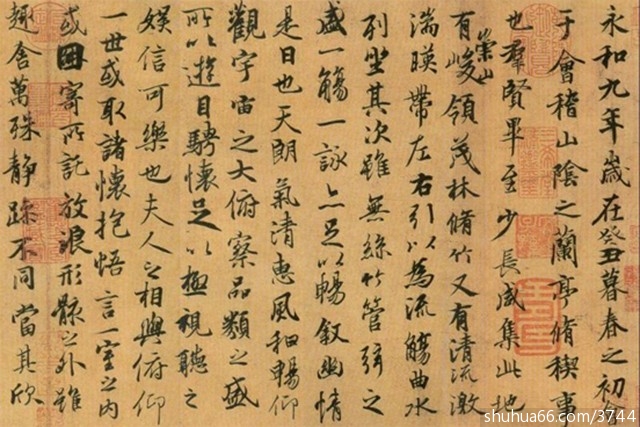 永和九年歲在癸丑暮春之初會
于會稽山陰之蘭亭脩禊事
也羣賢畢至少長咸集此地
有崇山峻領茂林脩竹又有清流激
湍暎帶左右引以為流觴曲水
列坐其次雖無絲竹管弦之
盛一觴一詠亦足以暢叙幽情
是日也天朗氣清惠風和暢仰
觀宇宙之大俯察品類之盛
所以遊目騁懷足以極視聽之
娛信可樂也夫人之相與俯仰
一世或取諸懷抱悟言一室之內
或因寄所託放浪形骸之外雖
趣舍萬殊靜躁不同當其欣
shuhua66.com/3744